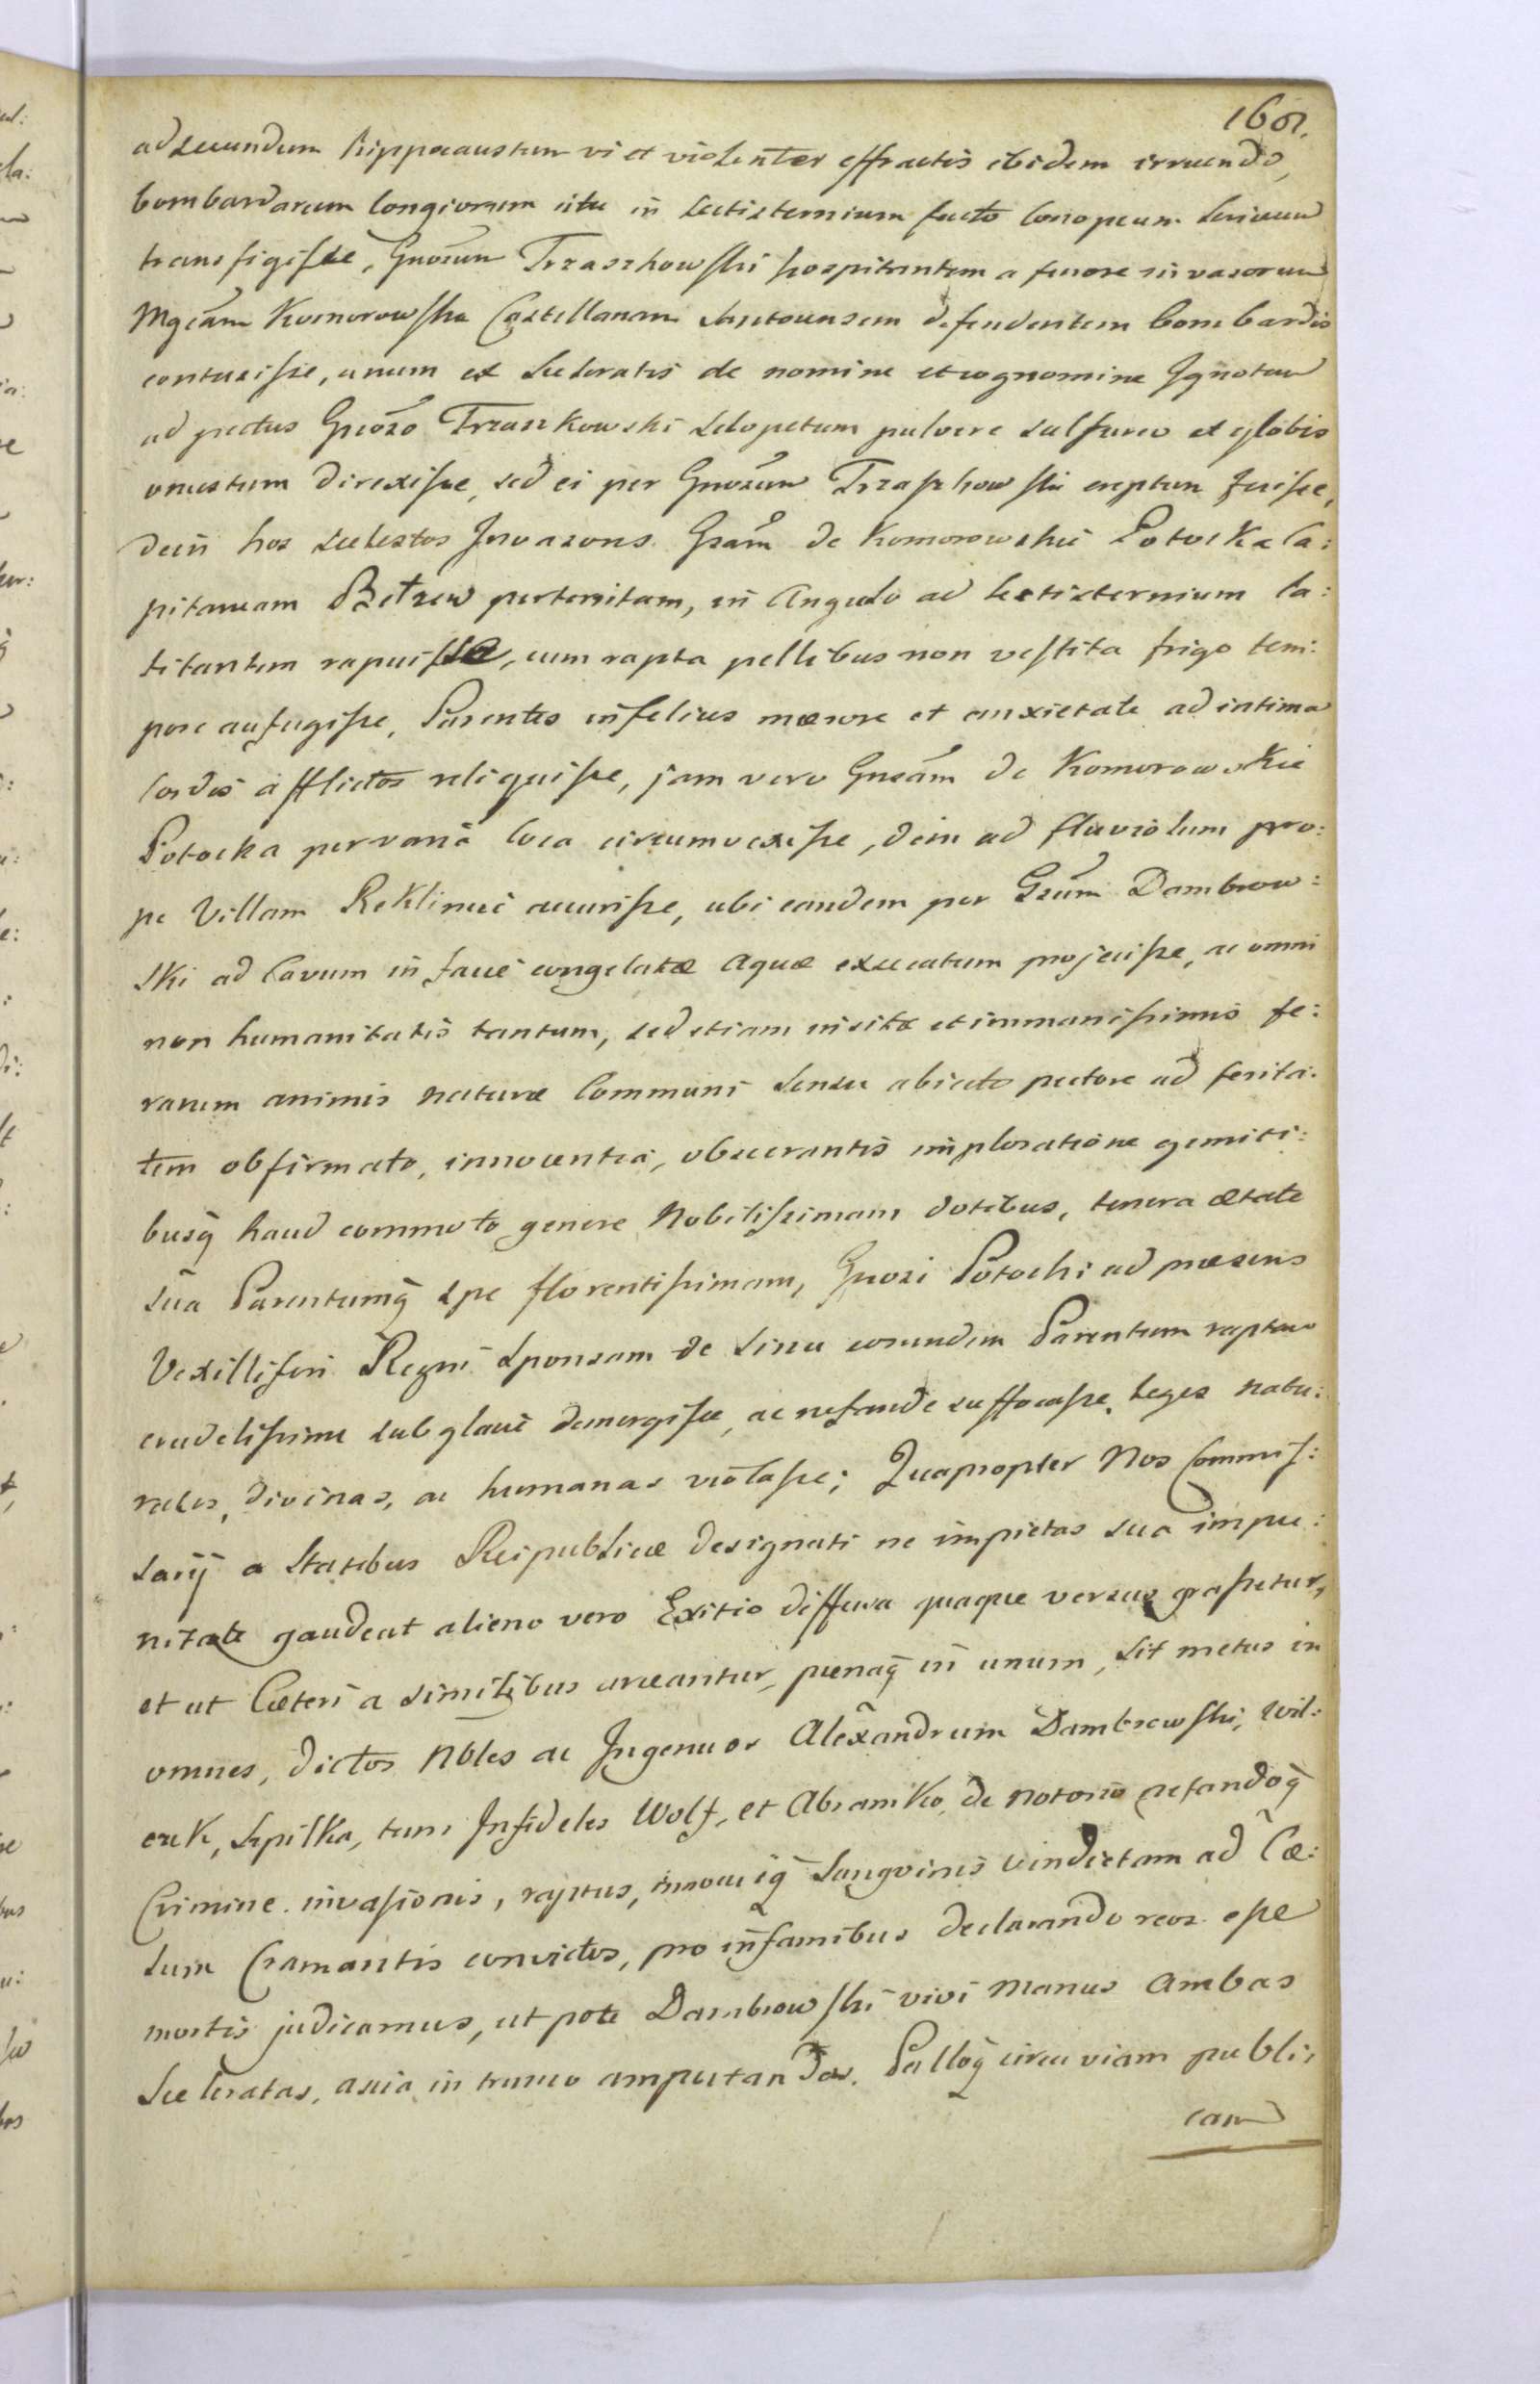 1601.
ad secundum hippocaustum vi et violenter effractis ibidem irruendo,
bombardarum longiorum ictu in lectisternium facto Conopeum sericum
transfigisse, Gnosum Trzaszkowski hospitantem a furore invasorum
Mgcam Komorowska Castellanam Santocensem defendentem bombardis
contusisse, unum ex sceleratis de nomine et cognomine Ignotum
ad pectus Gnoso Trzaszkowski sclopetum pulvere sulfureo et globis
onustum direxisse, sed ei per Gnosum Trzaszkowski ereptum fuisse,
dein hos scelestos Invasores Gsam de Komorowskie Potocka Ca:
pitaneam Bełzen perterritam, in Angulo ad lectisternium la:
titantem rapuisse, cum rapta pellibus non vestita frigo tem:
pore aufugisse, Parentes infelices mærore et anxietate ad intima
Cordis afflictos reliquisse, jam vero Gnsam de Komorowskie
Potocka per varia loca circumvexisse, dein ad fluviolum pro:
pe Villam Reklinec accurisse, ubi eandem per Gsum Dambrow:
ski ad Cavum in facie congelatæ Aquæ exsecatum projecisse, ac omni
non humanitatis tantum, sed etiam insitæ et immanissimis fe:
rarum animis naturæ Communi sensu abjecto pectore ad ferita:
tem obfirmato, innocentia, obsecrantis imploratione gemiti:
busq̃ haud commoto genere Nobilissimam dotibus, tenera ætate
sua Parentumq̃ spe florentissimam, Gnosi Potocki ad præsens
Vexilliferi Regni Sponsam de sinu eorundem Parentum raptam
crudelissime sub glacie demergisse, ac nefande suffocasse, leges natu:
rales, divinas, ac humanas violasse; Quapropter Nos Commis:
sarij a Statibus Reipublicæ designati ne impietas sua impu:
nitate gaudeat alieno vero Exitio diffusa quaque versus grassetur,
et ut Cæteri a similibus arceantur, pœnaq̃ in unum, sit metus in
omnes, dictos Nbles ac Ingenuos Alexandrum Dambrowski, Wil:
czek, Szpilka, tum Infideles Wolf, et Abramko, de notorio nefandoq̃
Crimine invasionis, raptus, innocuiq̃ Sangvinis vindictam ad Cæ:
lum Cramantis convictos, pro infamibus declarando reos esse
mortis judicamus, ut pote Dambrowski vivi Manus Ambas
Sceleratas, ascia in trunco amputandas, Palloq̃ circa viam publi:
cam